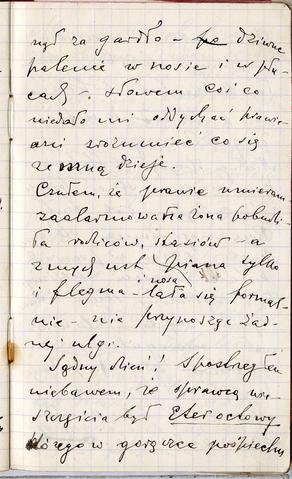 nął za gardło – dziwne
palenie w nosie i w płu
cach – słowem coś co
niedało mi oddychać prawie
ani zrozumieć co się
ze mną dzieje.
Czułem, że prawie umieram
zaalarmowała żona pobudzi-
ła rodziców, Staziów – a
z mych ust i nosa piana tylko
i flegma – lała się formal
nie – nie przynosząc żad
nej ulgi.
Sądny dzień! Spostrzegłem
niebawem, że sprawcą nie
szczęścia był Eter octowy
którego w gorączce pośpiechu